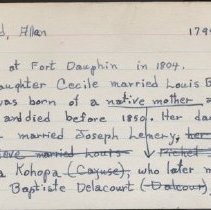 d, Allan 179
at Fort Dauphin in 1804.
aughter Cecile married Louis
was born of a native mother
and died before 1850. Her da
married Joseph Lemery, her
married Louis Pichet
a Kohopa (Cayuse), who later m
Baptiste Delacourt (Dalcour)